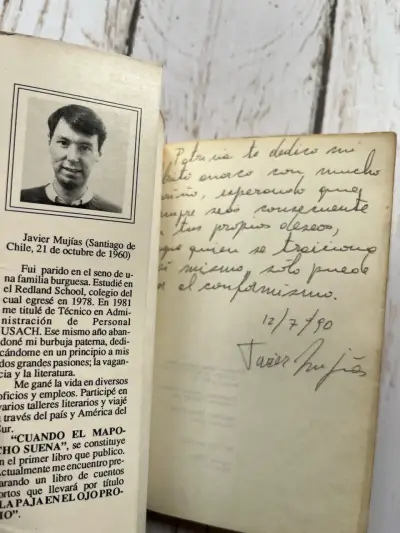 Javier Mujías (Santiago de
Chile, 21 de octubre de 1960)
Fui parido en el seno de u-
na familia burguesa. Estudié en
el Redland School, colegio del
cual egresé en 1978. En 1981
me titulé de Técnico en Admi-
nistración de Personal
USACH. Ese mismo año aban-
doné mi burbuja paterna, dedi-
cándome en un principio a mis
dos grandes pasiones; la vagan-
cia y la literatura.
Me gané la vida en diversos
oficios y empleos. Participé en
varios talleres literarios y viajé
a través del país y América del
Sur.
"CUANDO EL MAPO-
CHO SUENA", se constituye
en el primer libro que publico.
Actualmente me encuentro pre-
parando un libro de cuentos
cortos que llevará por título
"LA PAJA EN EL OJO PRO-
PIO".
Patricia te dedico mi
con mucho
esperando que
seas consecuente
tus propios deseos,
quien se traiciona
mismo, sólo puede
el conformismo.
12/7/90
Javier Mujías